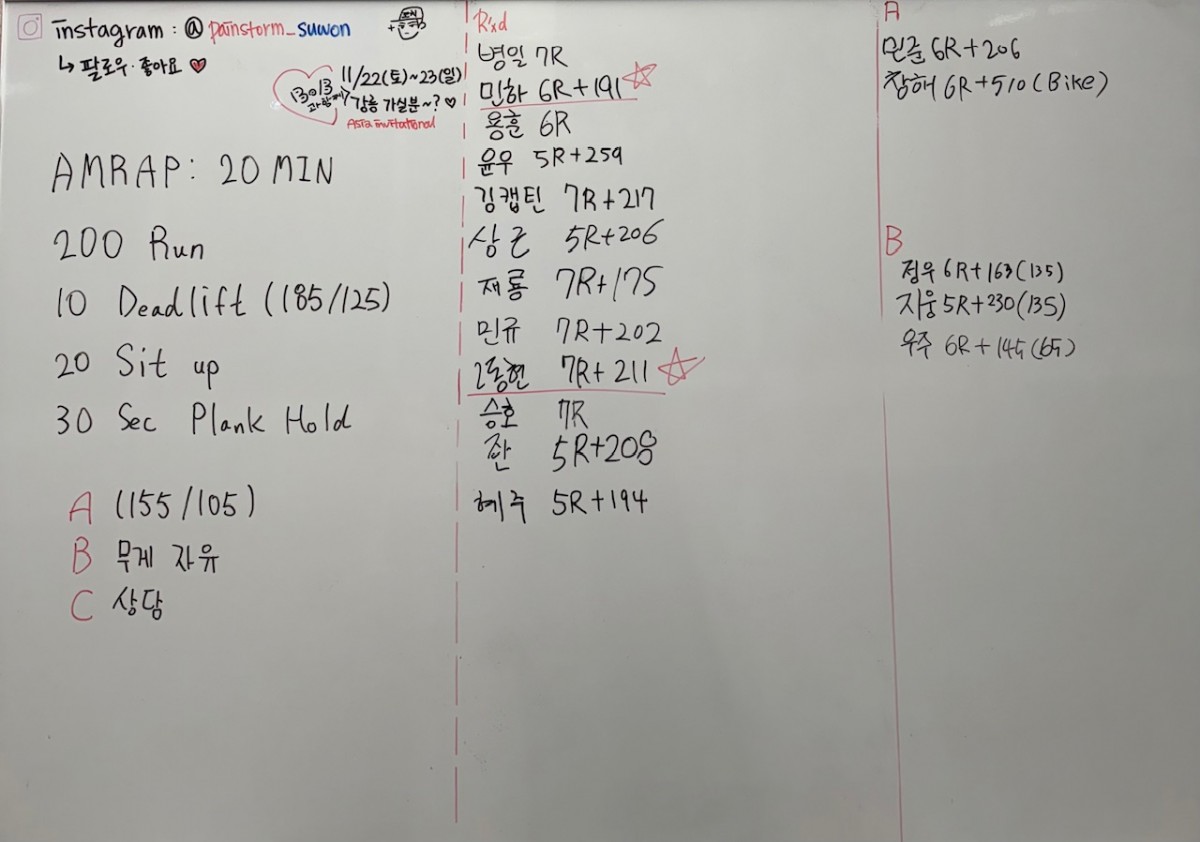 instagram : @ painstorm_suwon
↳ 팔로우·좋아요 ♥
11/22(토)~23(일)
강릉 가실분~? ♥
Asia invitational
AMRAP: 20 MIN
200 Run
10 Deadlift (185/125)
20 Sit up
30 Sec Plank Hold
A (155/105)
B 무게 자유
C 상담
R'xd
병일 7R
민하 6R+191
용훈 6R
윤우 5R+259
김캡틴 7R+217
상근 5R+206
재룡 7R+175
민규 7R+202
7R+211
승호 7R
5R+208
혜주 5R+194
A
민준 6R+206
창해 6R+510(Bike)
B
정우 6R+163(135)
지웅 5R+230(135)
우주 6R+145(65)